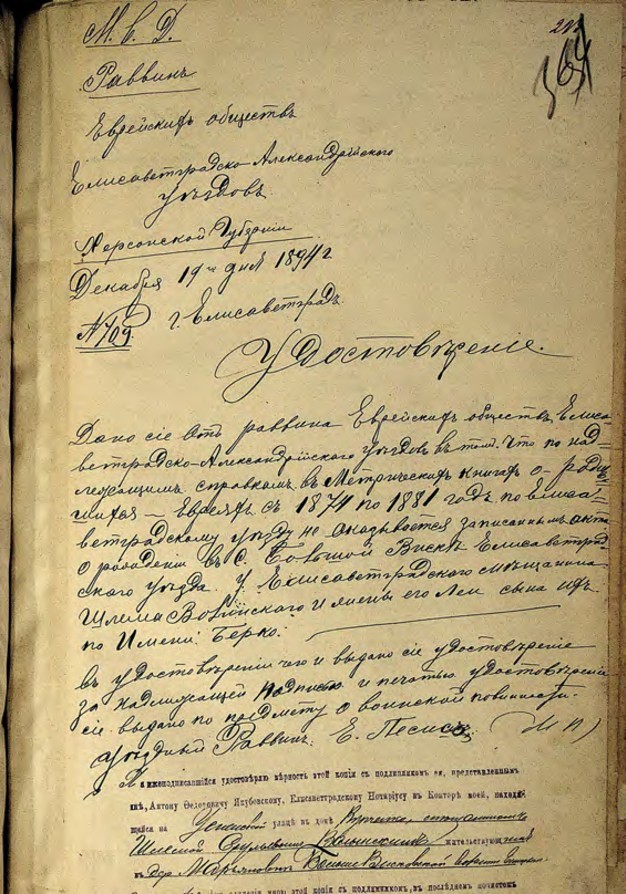 М. В. Д.
213
364
Раввинъ
Еврейскихъ обществъ
Елисаветградско-Александрійскаго
уѣздовъ
Херсонской Губерніи
Декабря 19го дня 1894 г
№ 709.
г. Елисаветградъ
Удостовѣреніе.
Дано сіе отъ раввина Еврейскихъ обществъ Елиса-
ветградско-Александрійскаго уѣздовъ въ томъ, что по над-
лежащимъ справкамъ въ Метрическихъ книгахъ о родив-
шихся Евреяхъ съ 1874 по 1881 годъ по Елиса-
ветградскому уѣзду не оказывается записаннымъ акта
о рожденіи въ с. Большой Вискѣ Елисаветград-
скаго уѣзда у Елисаветградскаго мѣщанина
Шлема Волынскаго и жены его Леи сына ихъ
по Имени: Берко.
въ удостовѣреніи чего и выдано сіе удостовѣреніе
за надлежащей подписью и печатью удостовѣреніе
сіе выдано по предмету о воинской повинности.
Уѣздный Раввинъ: Е. Песисъ (М П)
Я нижеподписавшійся удостовѣряю вѣрность этой копіи съ подлинникомъ ея, представленнымъ
мнѣ, Антону Федоровичу Якубовскому, Елисаветградскому Нотаріусу въ Конторѣ моей, находя-
щейся на Успенской улицѣ въ домѣ
Шлемой Волынскимъ жительствующимъ
въ дер. Марьяновкѣ Больше Висковской волости
этой копіи съ подлинникомъ, въ послѣднемъ почистокъ